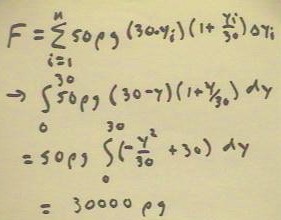 F = Σ_{i=1}^{n} 50ρg (30-y_i) (1 + y_i/30) Δy_i
→ ∫_0^{30} 50ρg (30-y) (1+y/30) dy
= 50ρg ∫_0^{30} (-y²/30 + 30) dy
= 30000 ρg